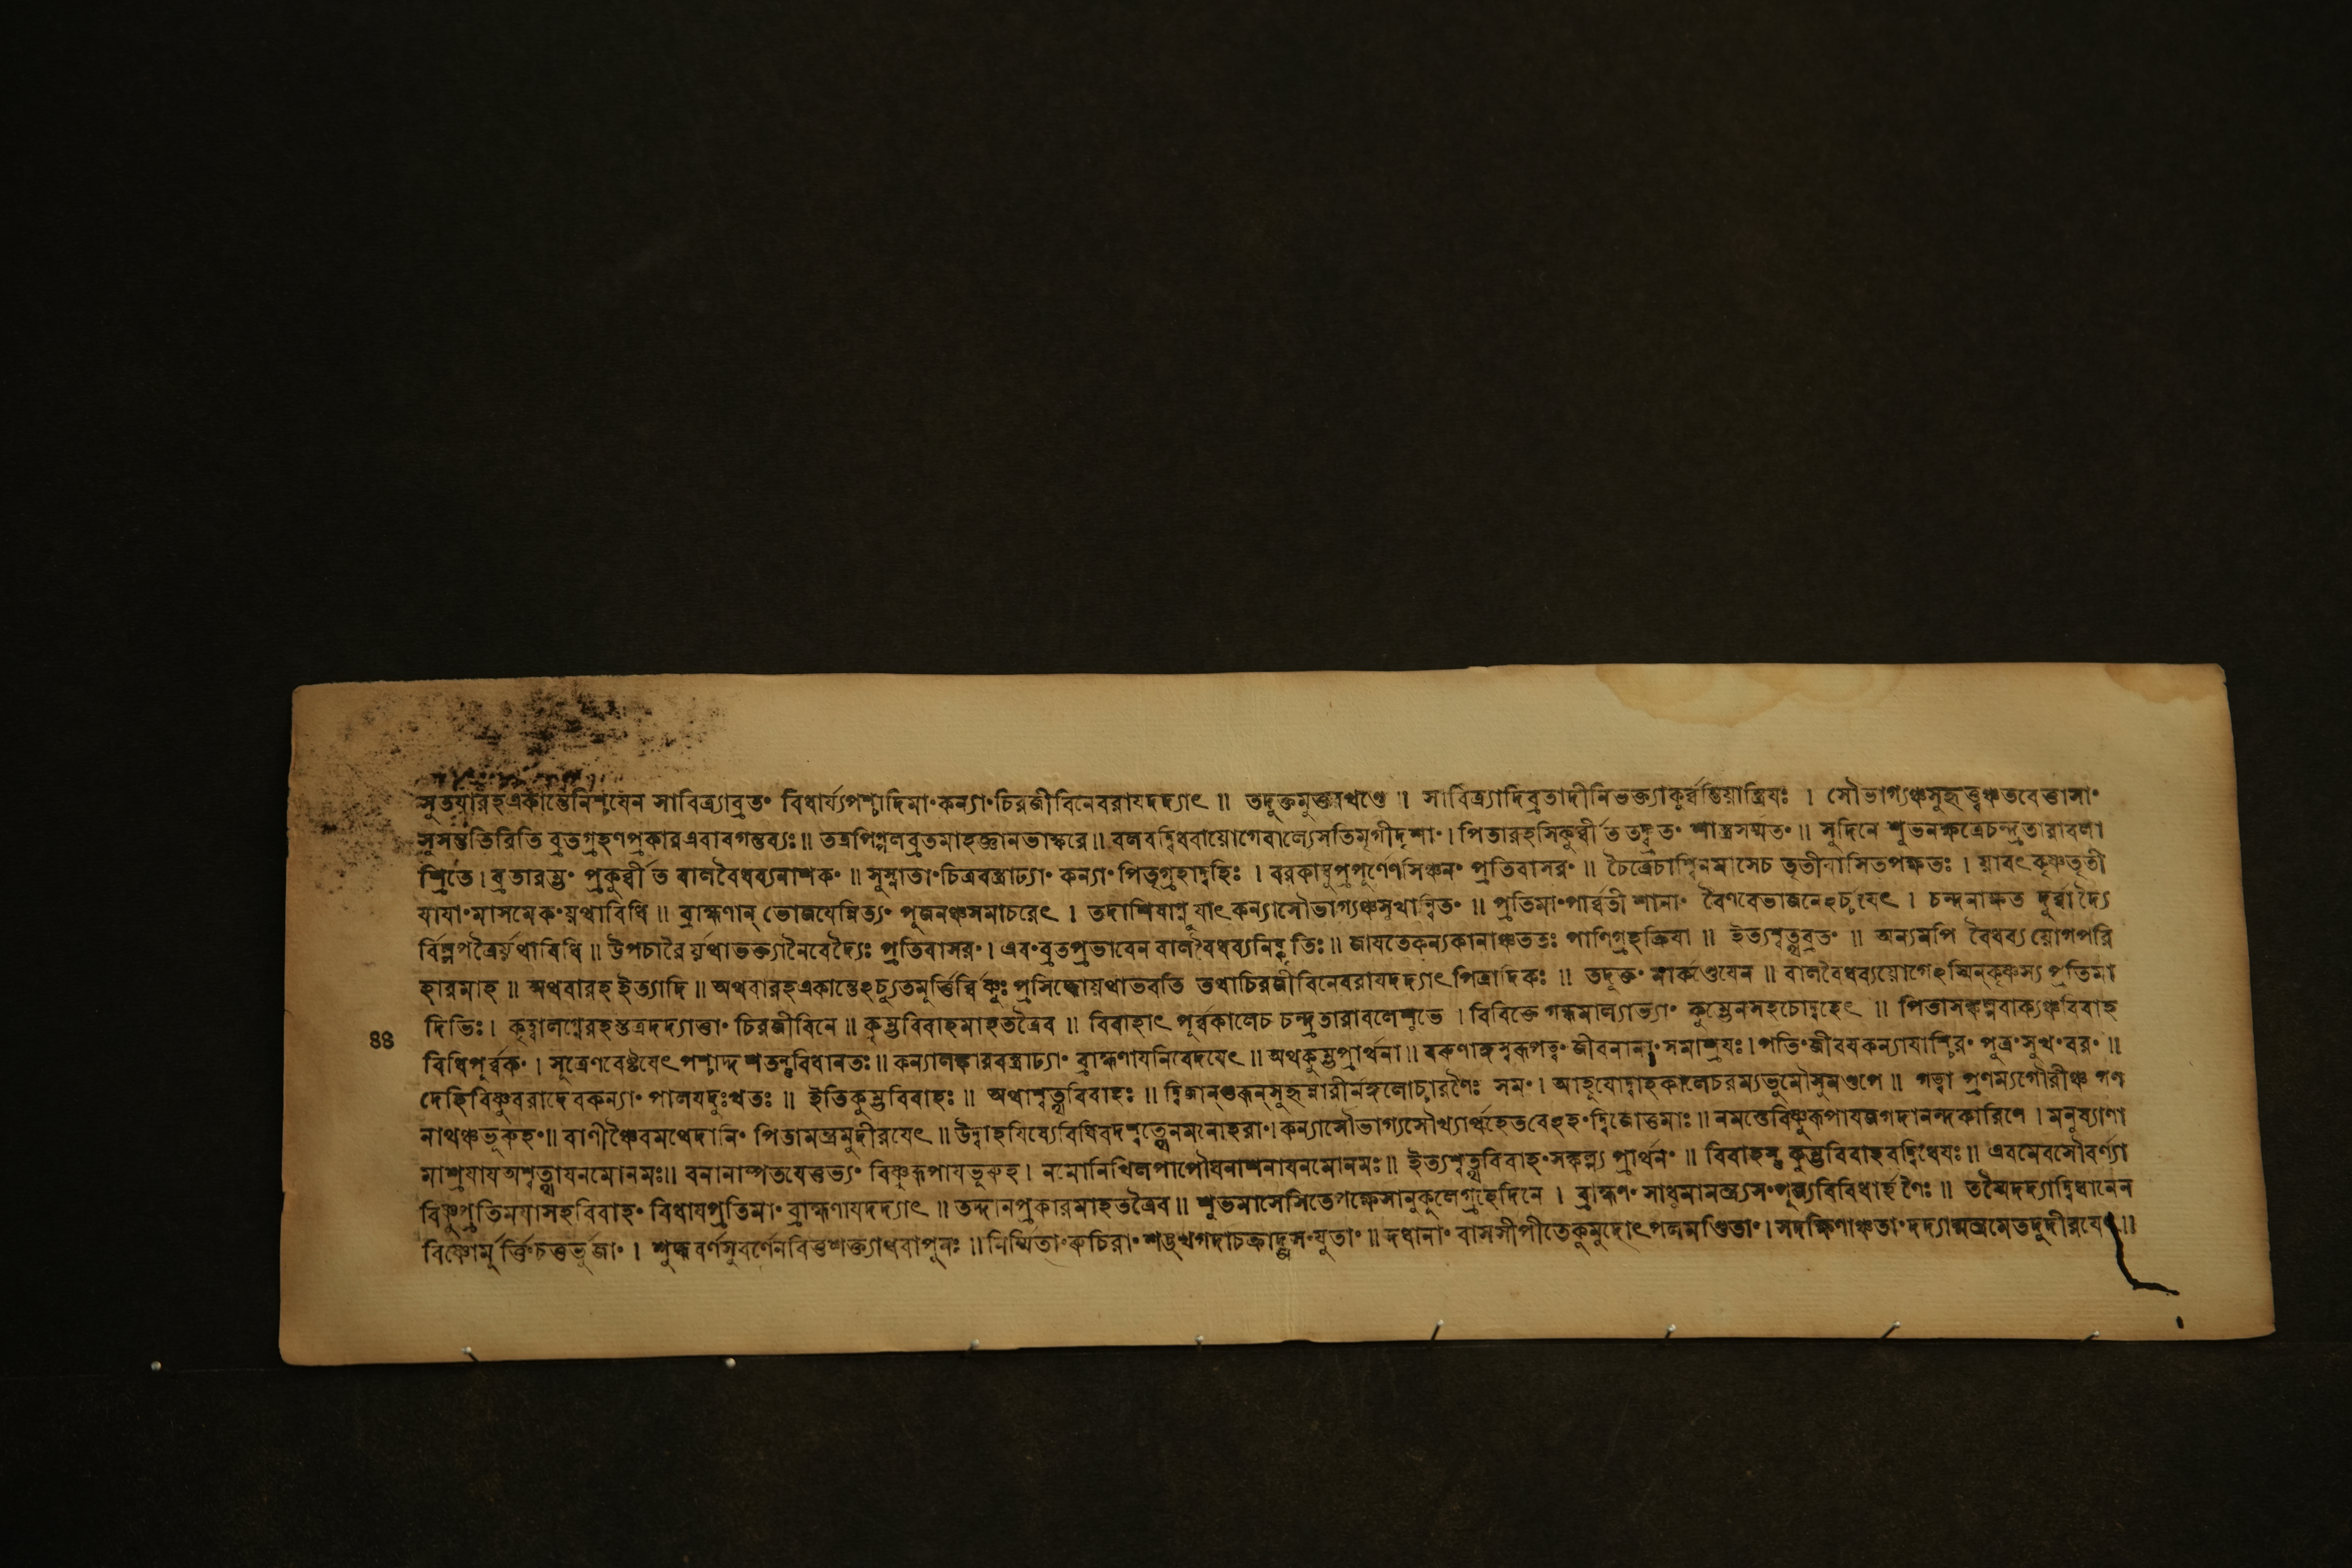 সুতযারহএকান্তেনিশ্চযেন সাবিত্র্যাব্রতং বিধার্য্যপশ্চাদিমাং কন্যাং চিরজীবিনেবরাযদদ্যাৎ ॥ তদুক্তমুক্ত খণ্ডে ॥ সাবিত্র্যাদিব্রতাদীনিভক্ত্যাকুর্ব্বন্তিয়াস্ত্রিযঃ । সৌভাগ্যঞ্চসুহৃত্ত্বঞ্চতবেত্তাসাং
সুসন্ততিরিতি ব্রতগ্রহণপ্রকারএবাবগন্তব্যঃ ॥ তত্রপিপ্পলব্রতমাহজ্ঞানভাস্করে ॥ বলবদ্বিধবাযোগেবাল্যেসতিমৃগীদৃশাং । পিতারহসিকুর্ব্বীত তদ্ব্রতং শাস্ত্রসম্মতং ॥ সুদিনে শুভনক্ষত্রেচন্দ্রতারাবলা
শ্রিতে । ব্রতারম্ভং প্রকুর্ব্বীত বালবৈধব্যনাশকং ॥ সুস্নাতাং চিত্রবস্ত্রাঢ্যাং কন্যাং পিতৃগৃহাদ্বহিঃ । বরকাম্বুপ্রপূর্ণেণসিঞ্চনং প্রতিবাসরং ॥ চৈত্রেচাশ্বিনমাসেচ তৃতীযাসিতপক্ষতঃ । য়াবৎকৃষ্ণতৃতী
যাযাংমাসমেকংয়থাবিধি ॥ ব্রাহ্মণান্ ভোজযেন্নিত্যং পূজনঞ্চসমাচরেৎ । তদাশিষাপ্নুযাৎকন্যাসৌভাগ্যঞ্চসুখান্বিতং ॥ প্রতিমাংপার্ব্বতীশানাং বৈণবেভাজনেঽর্চ্চযেৎ । চন্দনাক্ষত দূর্ব্বাদ্যৈ
র্বিল্বপত্রৈর্য়থাবিধি ॥ উপচারৈর্য়থাভক্ত্যানৈবেদ্যৈঃ প্রতিবাসরং । এবংব্রতপ্রভাবেন বালবৈধব্যনিহৃতিঃ ॥ জাযতেকন্যকানাঞ্চততঃ পাণিগ্রহক্রিযা ॥ ইত্যশ্বত্থব্রতং ॥ অন্যমপি বৈধব্য য়োগপরি
হারমাহ ॥ অথবারহ ইত্যাদি ॥ অথবারহএকান্তেঽচ্যুতমুর্ত্তির্বিষ্ণুঃ প্রসিদ্ধোয়থাভবতি তথাচিরজীবিনেবরাযদদ্যাৎপিত্রাদিকঃ ॥ তদুক্তং মার্কণ্ডেযেন ॥ বালবৈধব্যয়োগেঽস্মিন্কৃষ্ণস্য প্রতিমা
দিভিঃ । কৃত্বালগ্নেরহস্তত্রদদ্যাত্তাং চিরজীবিনে ॥ কুম্ভবিবাহমাহতত্রৈব ॥ বিবাহাৎ পূর্ব্বকালেচ চন্দ্রতারাবলেশুভে । বিবিক্তে গন্ধমাল্যাভ্যাং কুম্ভেনসহচোদ্বহেৎ ॥ পিতাসঙ্কল্পবাক্যঞ্চবিবাহ
বিধিপূর্ব্বকং । সূত্রেণবেষ্টযেৎপশ্চাদ্দশতন্তুবিধানতঃ ॥ কন্যালঙ্কারবস্ত্রাঢ্যাং ব্রাহ্মণাযনিবেদযেৎ ॥ অথকুম্ভপ্রার্থনা ॥ বরুণাঙ্গস্বরূপত্বং জীবনানাংসমাশ্রযঃ । পতিংজীবযকন্যাযাশ্চিরং পুত্রংসুখংবরং ॥
দেহিবিষ্ণুবরাদেবকন্যাং পালযদুঃখতঃ ॥ ইতিকুম্ভবিবাহঃ ॥ অথাশ্বত্থবিবাহঃ ॥ দ্বিজান্গুরূন্সুহৃন্নারীর্মঙ্গলোচ্চারণৈঃ সমং । আহূযোদ্বাহকালেচরম্যভূমৌসুমণ্ডপে ॥ গত্বা প্রণম্যগৌরীঞ্চ গণ
নাথঞ্চভূরুহং ॥ বাণীঞ্চৈবমথেদানিং পিতামন্ত্রমুদীরযেৎ ॥ উদ্বাহযিষ্যেবিধিবদশ্বত্থেনমনোহরাং । কন্যাসৌভাগ্যসৌখ্যার্থহেতবেঽহংদ্বিজোত্তমাঃ ॥ নমস্তেবিষ্ণুরূপাযজগদানন্দকারিণে । মনুষ্যাণা
মাশ্রযাযঅশ্বত্থাযনমোনমঃ ॥ বনানাম্পতযেত্তভ্যং বিষ্ণুরূপাযভূরুহ । নমোনিখিলপাপৌঘনাশনাযনমোনমঃ ॥ ইত্যশ্বত্থবিবাহংসঙ্কল্প্য প্রার্থনং ॥ বিবাহস্তু কুম্ভবিবাহবদ্বিধেযঃ ॥ এবমেবসৌবর্ণ্যা
বিষ্ণুপ্রতিমযাসহবিবাহং বিধাযপ্রতিমাং ব্রাহ্মণাযদদ্যাৎ ॥ তদ্দানপ্রকারমাহতত্রৈব ॥ শুভমাসেসিতেপক্ষেসানুকূলেগ্রহেদিনে । ব্রাহ্মণং সাধুমামন্ত্র্যসংপূজ্যবিবিধার্হণৈঃ ॥ তস্মৈদদ্যাদ্বিধানেন
বিষ্ণোর্মূর্ত্তিংচত্তর্ভুজাং । শুদ্ধবর্ণসুবর্ণেনবিত্তশক্ত্যাথবাপুনঃ ॥ নির্ম্মিতাং রুচিরাং শঙ্খগদাচক্রাব্জসংযুতাং ॥ দধানাং বাসসীপীতেকুমুদোৎপলমণ্ডিতাং । সদক্ষিণাঞ্চতাংদদ্যান্মন্ত্রমেতদুদীরযেৎ ॥
৪৪